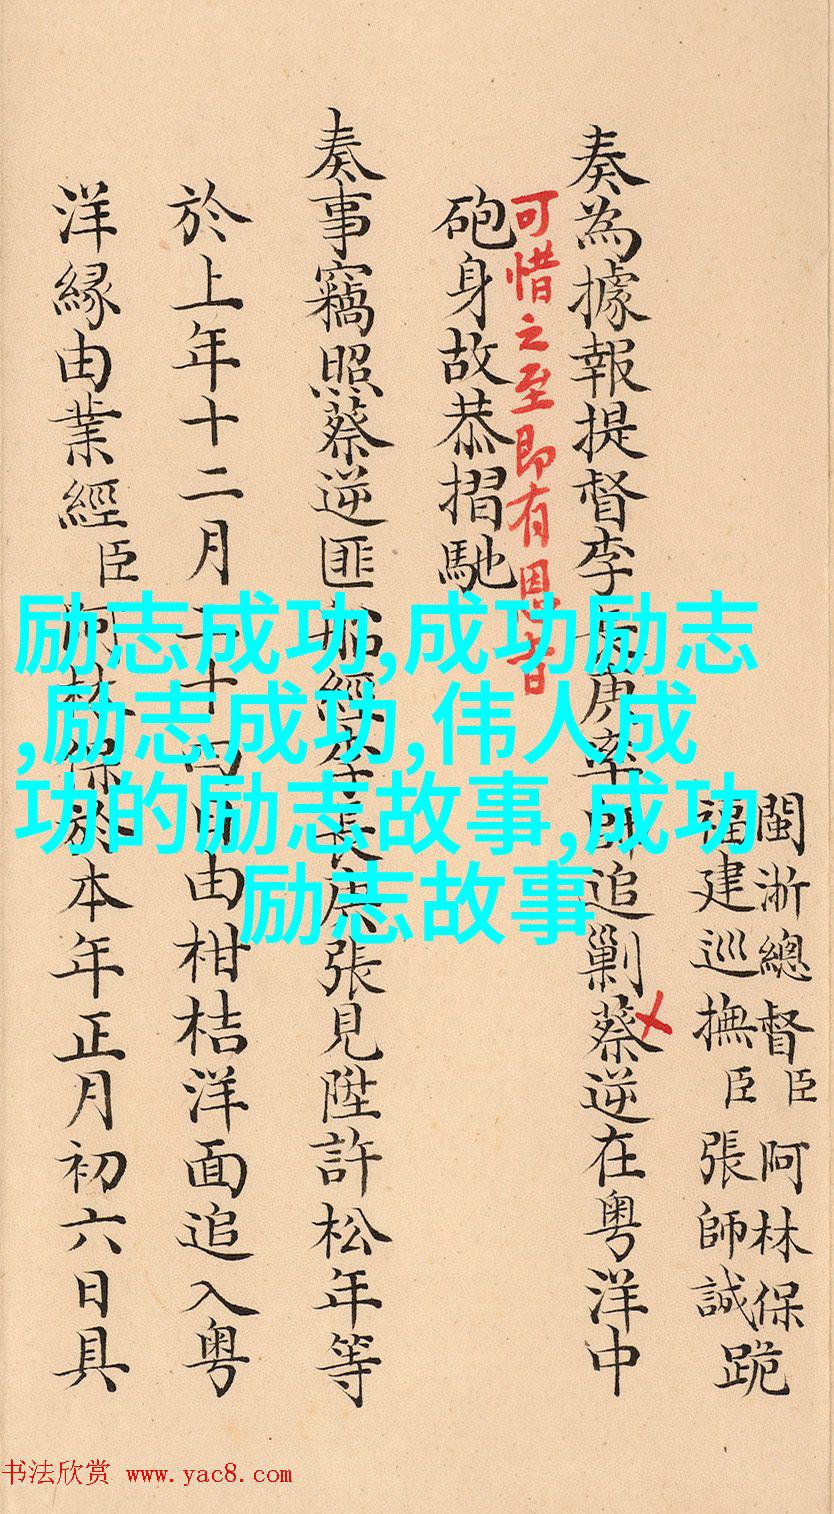 閩浙總督臣阿林保
福建巡撫臣張師誠跪
奏為據報提督李長庚率師追剿蔡逆在粵洋中
可惜之至即有恩旨
砲身故恭摺馳
奏事竊照蔡逆匪船經李長庚張見陞許松年等
於上年十二月二十四日由柑桔洋面追入粵
洋緣由業經臣阿林保於本年正月初六日具
励志成功,成功励志
,励志成功,伟人成
功的励志故事,成功
励志故事
书法欣赏 www.yac8.com